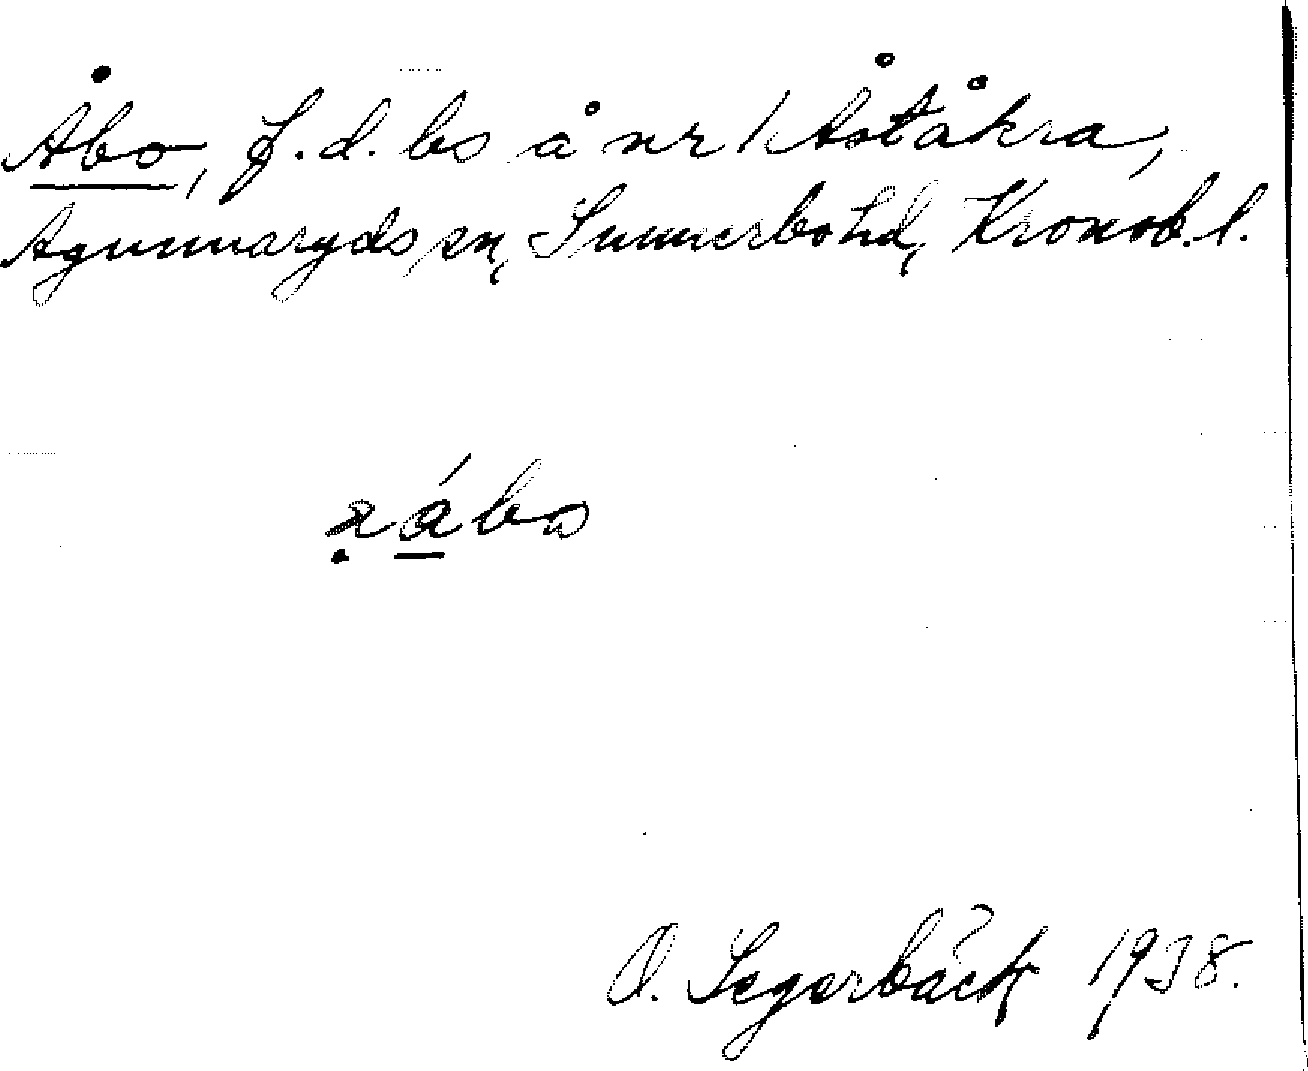 Åbo, f.d. bs å nr 1 Åståkra,
Agunnaryds sn, Sunnerbo hd, Kronob. l.
åbo
O. Segerbäck 1938.